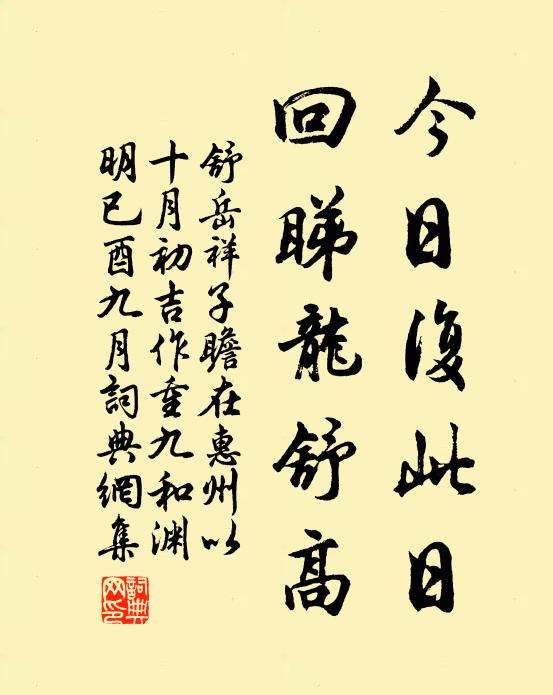 今日復此日
回睇龍舒高
舒岳祥子瞻在惠州以
十月初吉作重九和渊
明已酉九月詞典網集
詞典網印